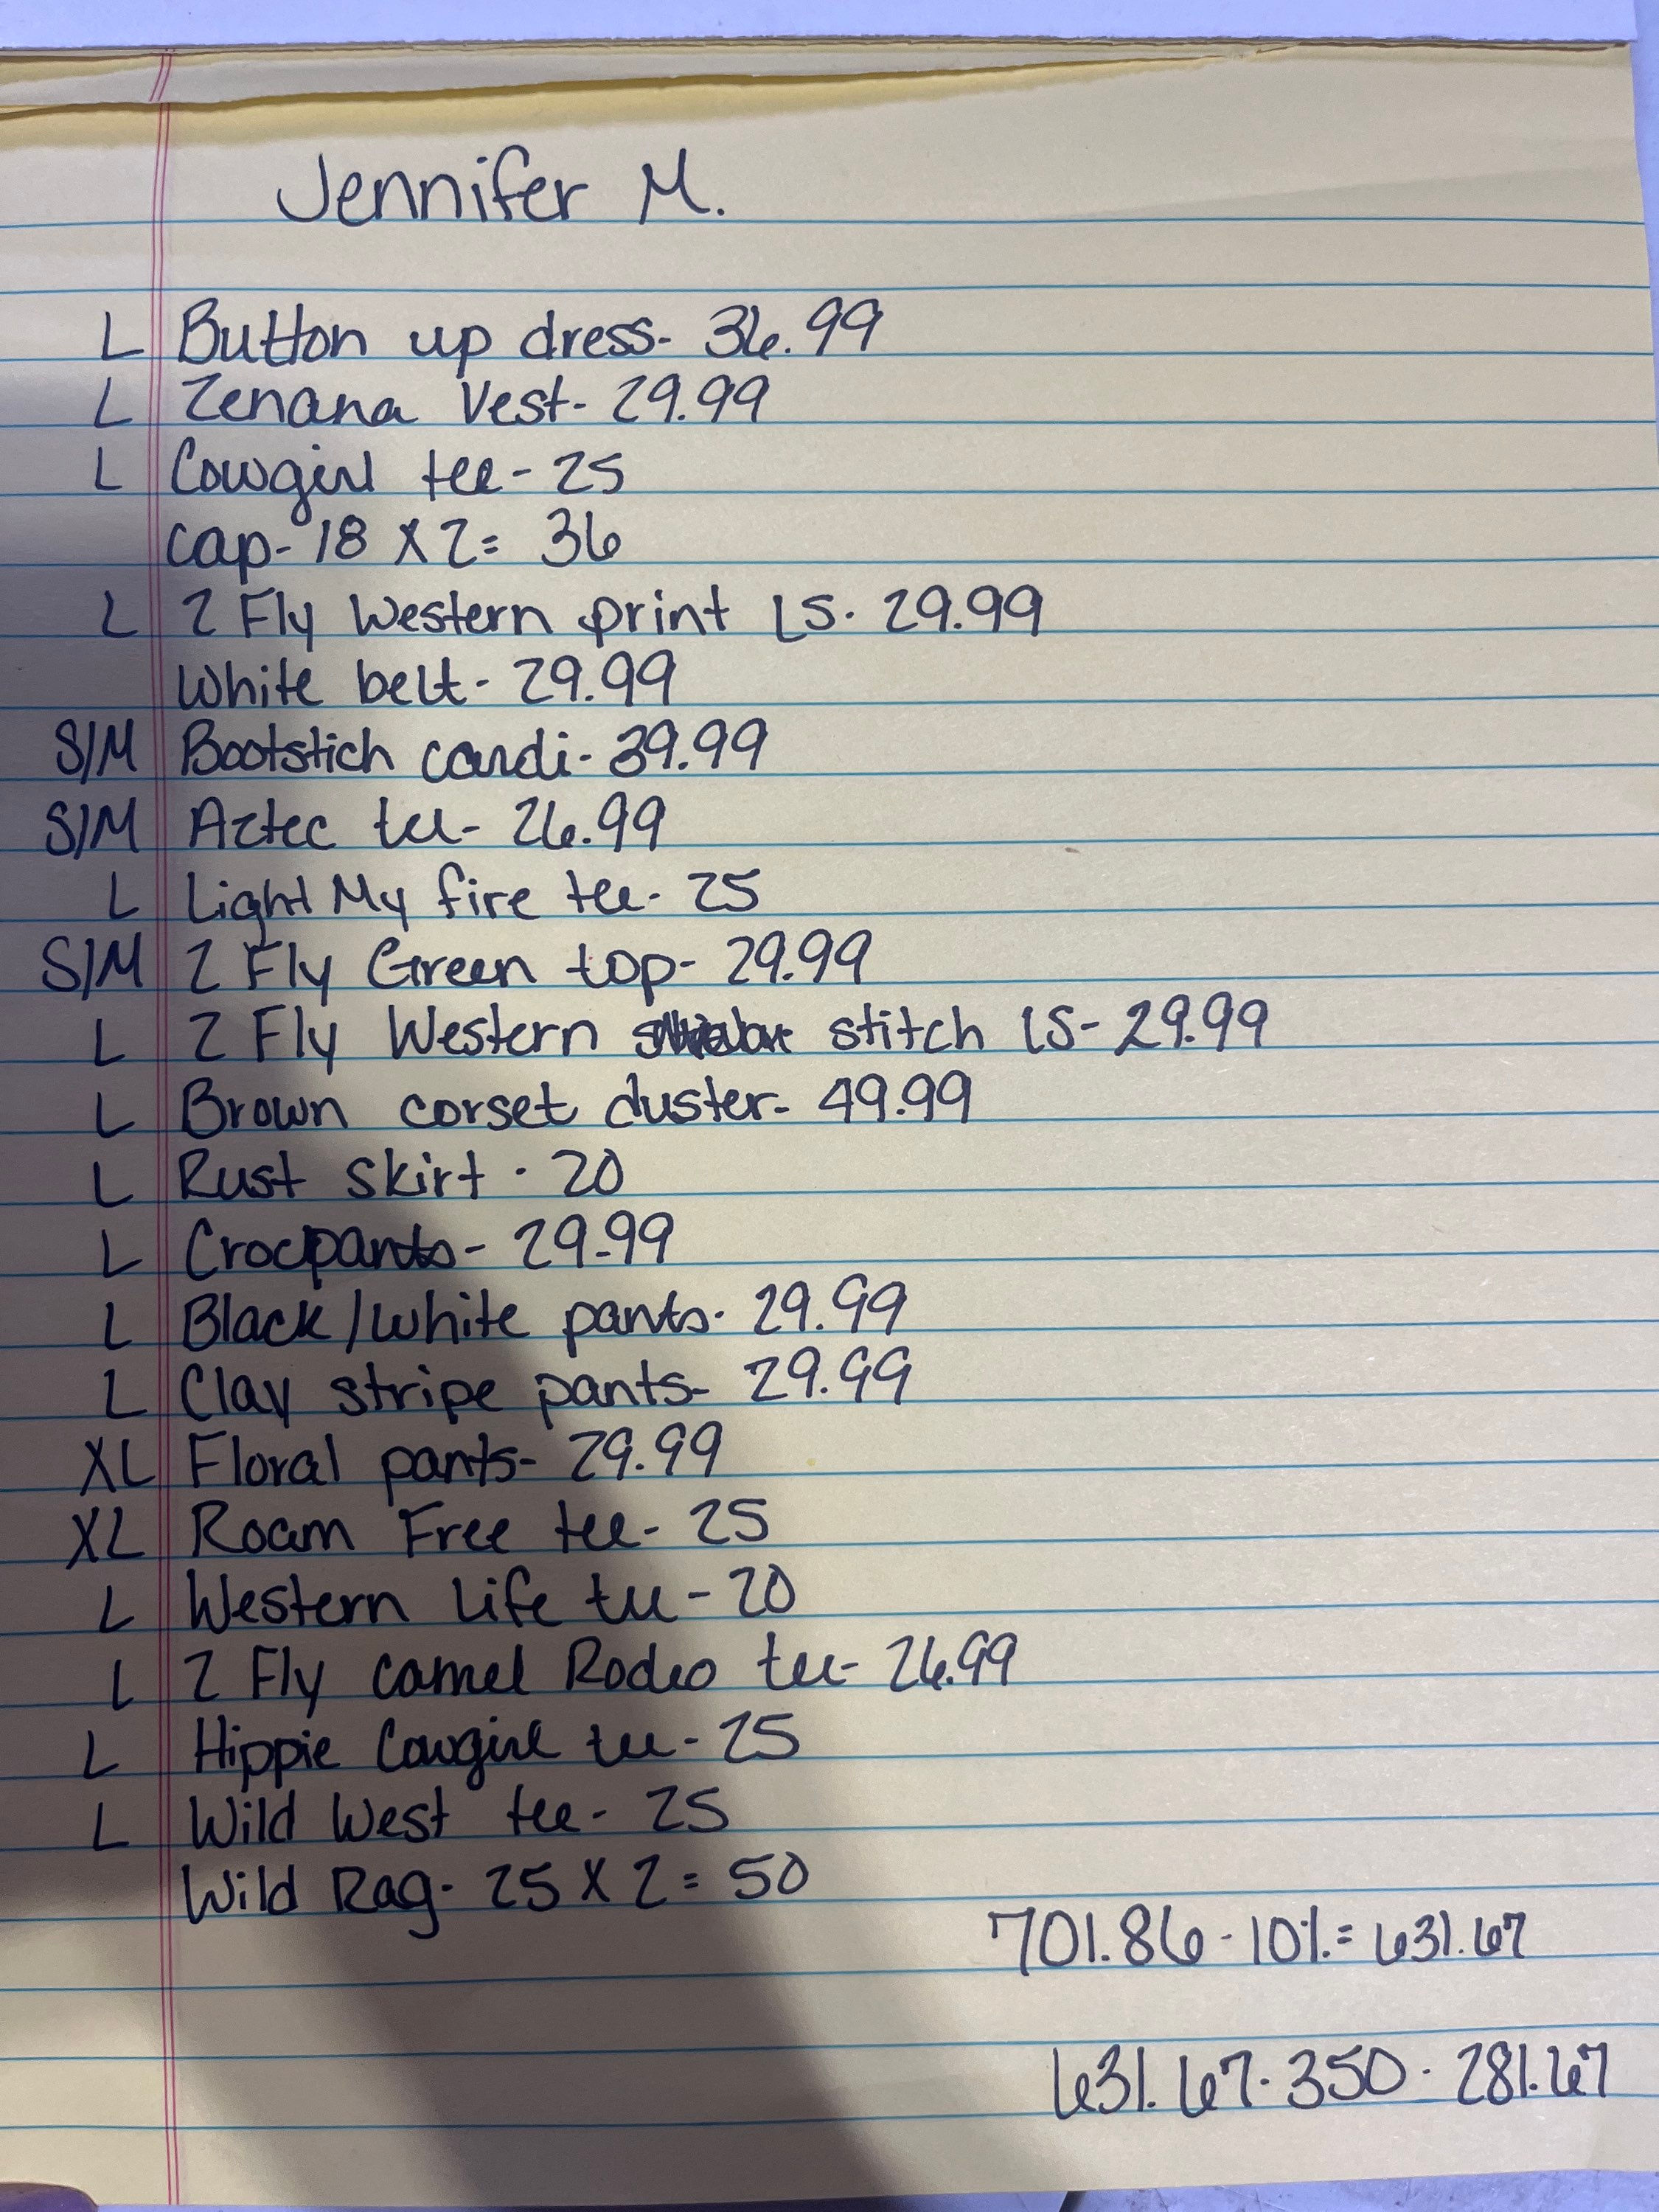 Jennifer M.
L Button up dress- 36.99
L Zenana Vest- 29.99
L Cowgirl tee- 25
cap- 18 X 2= 36
L 2 Fly Western print LS- 29.99
White belt- 29.99
S/M Bootstich cardi- 39.99
S/M Aztec tee- 26.99
L Light My fire tee- 25
S/M 2 Fly Green top- 29.99
L 2 Fly Western stitch LS- 29.99
L Brown corset duster- 49.99
L Rust skirt - 20
L Croc pants- 29.99
L Black/white pants- 29.99
L Clay stripe pants- 29.99
XL Floral pants- 29.99
XL Roam Free tee- 25
L Western Life tee- 20
L 2 Fly camel Rodeo tee- 26.99
L Hippie Cowgirl tee- 25
L Wild West tee- 25
Wild Rag- 25 X 2= 50
701.86 - 10%= 631.67
631.67- 350 - 281.67